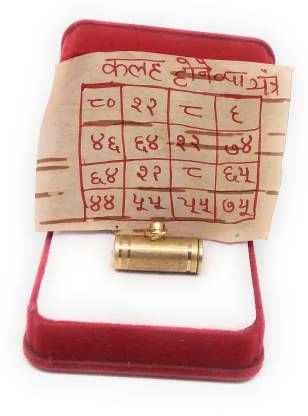 कलह होनेव्या यंत्र
८० २२ ८ ६
४६ ६४ २२ ७४
६४ २२ ८ ६५
४४ ५५ ५५ ७५